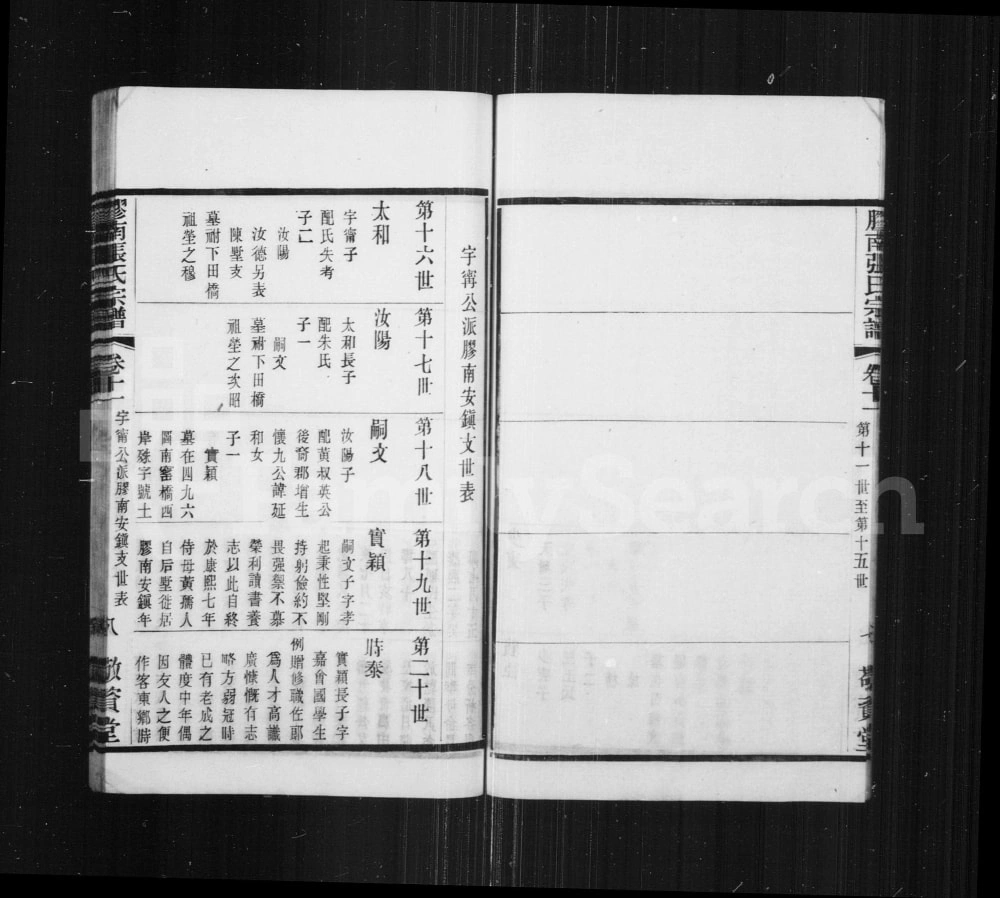 膠南張氏宗譜
卷十一
第十一世至第十五世
七
敬賚堂
宇甯公派膠南安鎮支世表
第十六世
太和
字甯子
配氏失考
子二
汝陽
汝德另表
陳墅支
墓祔下田橋
祖塋之穆
第十七世
汝陽
太和長子
配朱氏
子一
嗣文
墓祔下田橋
祖塋之次昭
第十八世
嗣文
汝陽子
配黄叔英公
後裔郡增生
懷九公諱延
和女
子一
實穎
墓在四九六
圖南窰橋西
岸殊字號土
第十九世
實穎
嗣文子字孝
起秉性堅剛
持躬儉約不
畏强禦不慕
榮利讀書養
志以此自終
於康熙七年
侍母黃孺人
自后墅徙居
膠南安鎮年
第二十世
時泰
實穎長子字
嘉會國學生
例贈修職佐郎
爲人才高識
廣慷慨有志
略方弱冠時
已有老成之
體度中年偶
因友人之便
作客東鄉時
膠南張氏宗譜
卷十一
宇甯公派膠南安鎮支世表
八
敬賚堂
Family Search